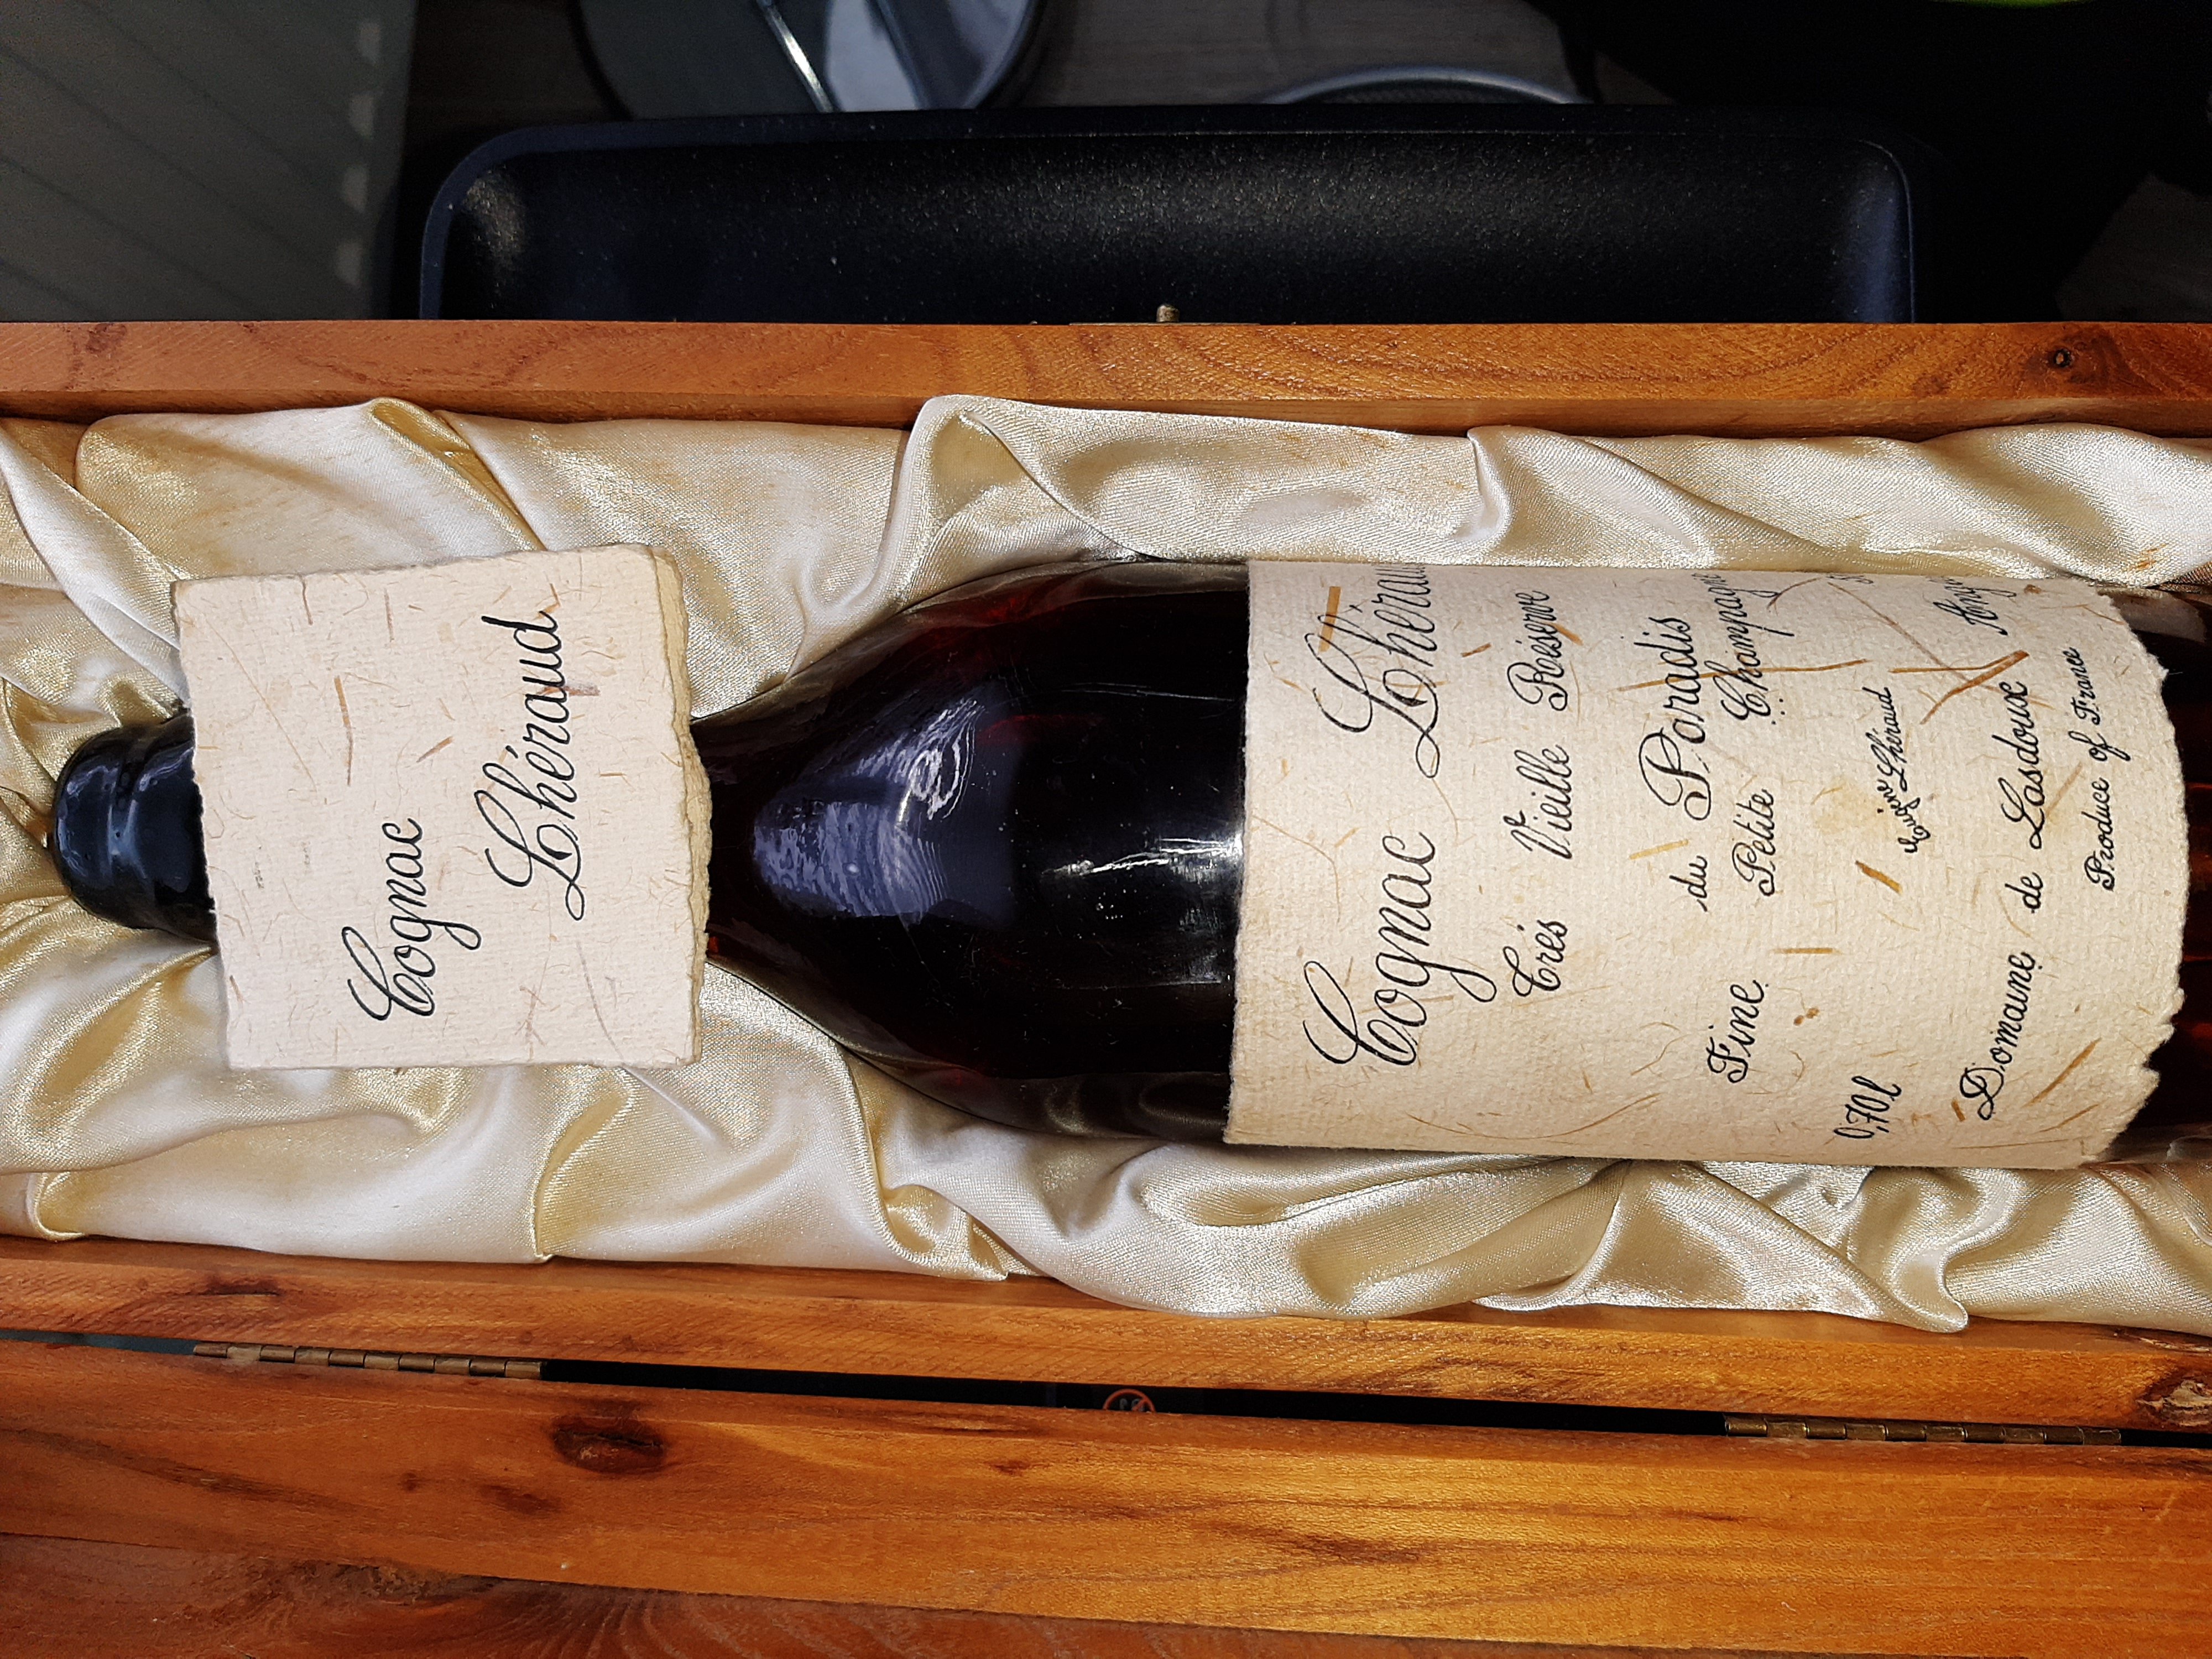 Cognac
Lhéraud
Cognac
Très Vieille Réserve
du Paradis
Fine Petite Champagne
0,70l
Eugène Lhéraud
Domaine de Lasdoux
Produce of France